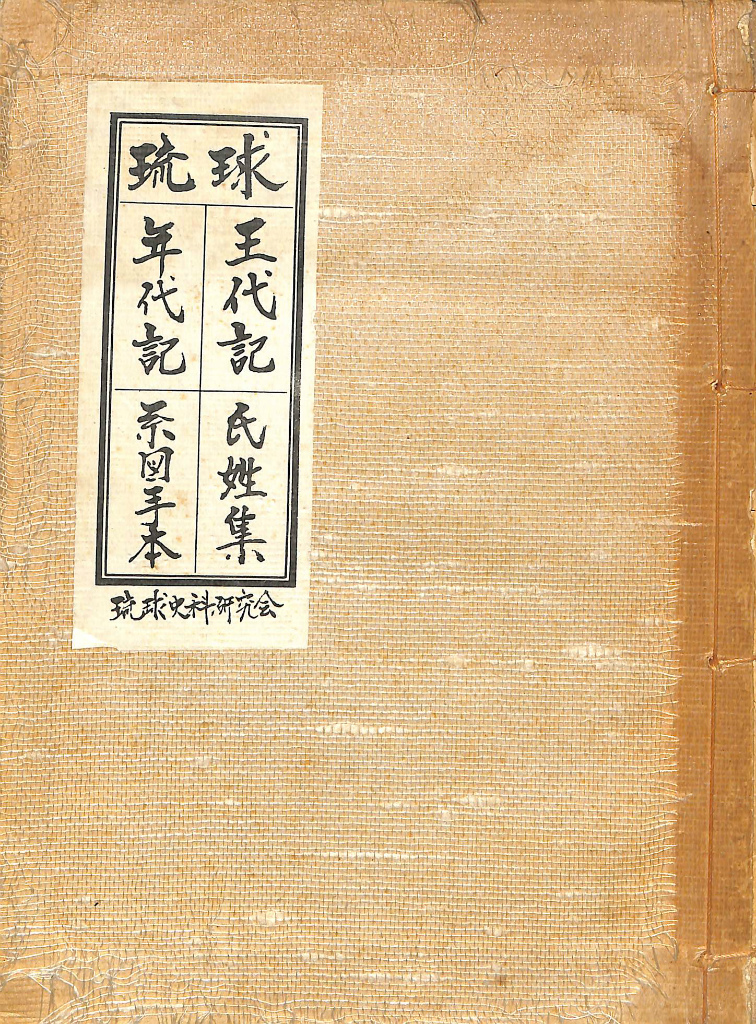 琉球
王代記
年代記
氏姓集
系図手本
琉球史料研究会